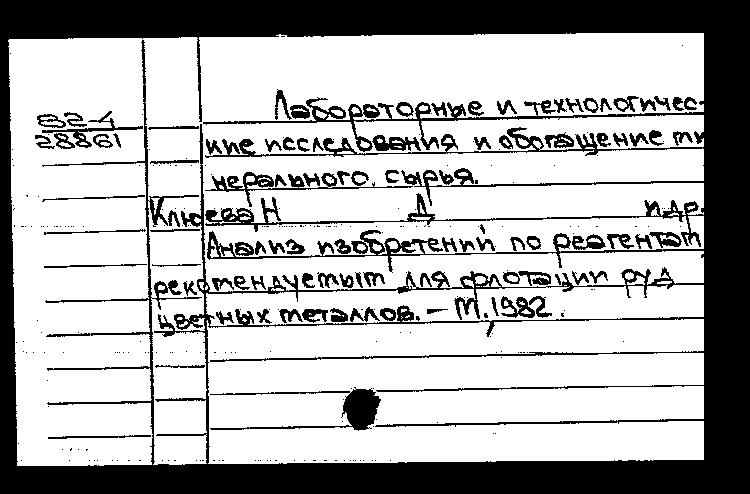 Лабораторные и технологичес-
82-4
28861
кие исследования и обогащение ми
нерального. сырья.
Клюева, Н Д и др.
Анализ изобретений по реагентам,
рекомендуемым для флотации руд
цветных металлов. – М., 1982.